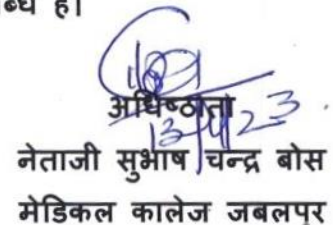 ब्ध है।
अधिष्ठाता
नेताजी सुभाष चन्द्र बोस
मेडिकल कालेज जबलपुर